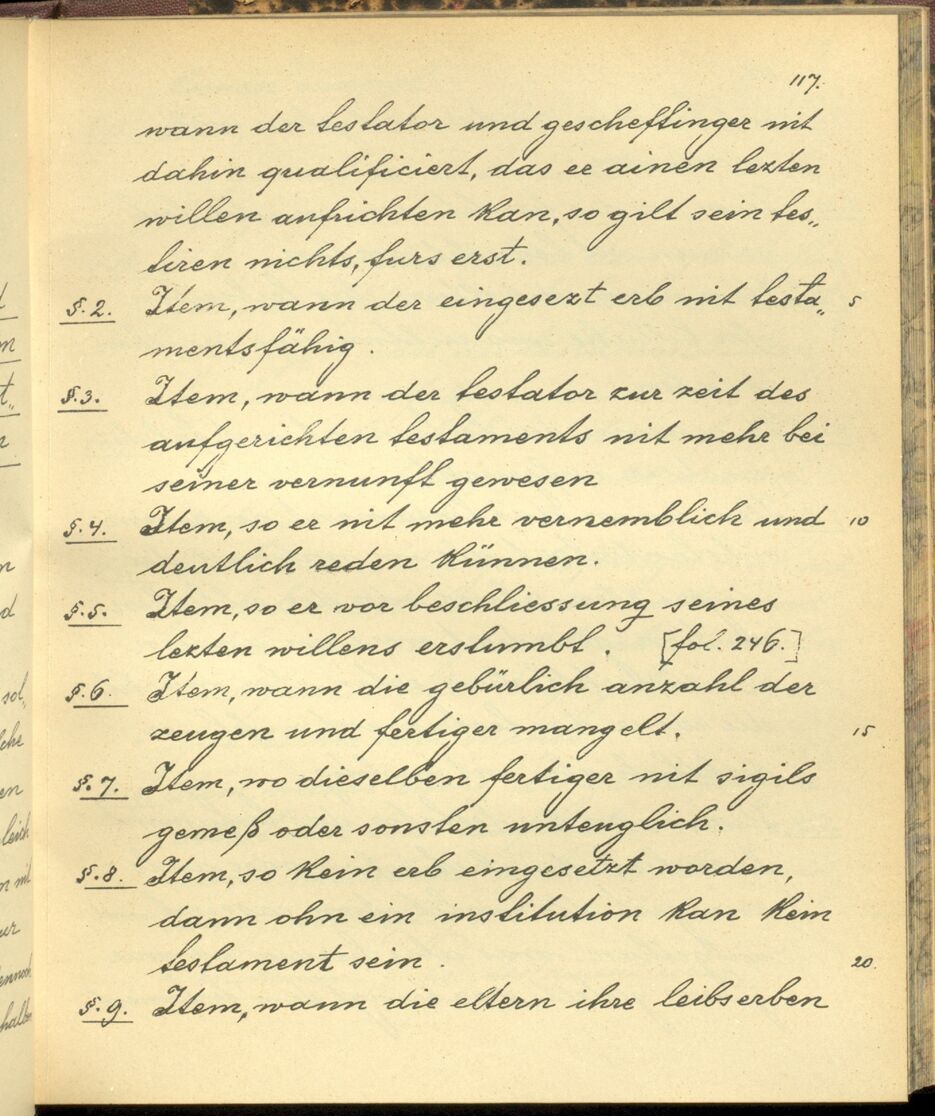 117.
wann der testator und gescheftinger nit
dahin qualificiert, das er ainen lezten
willen aufrichten kan, so gilt sein tes„
tiren nichts, furs erst.
§. 2. Item, wann der eingesezt erb nit testa„ 5
mentsfähig.
§. 3. Item, wann der testator zur zeit des
aufgerichten testaments nit mehr bei
seiner vernunft gewesen
§. 4. Item, so er nit mehr vernemblich und 10
deutlich reden künnen.
§. 5. Item, so er vor beschliessung seines
lezten willens erstumbt. [fol. 246.]
§. 6. Item, wann die gebürlich anzahl der
zeugen und fertiger mangelt. 15
§. 7. Item, wo dieselben fertiger nit sigils
gemeß oder sonsten unteuglich.
§. 8. Item, so kein erb eingesetzt worden,
dann ohn ein institution kan kein
testament sein. 20.
§. 9. Item, wann die eltern ihre leibserben